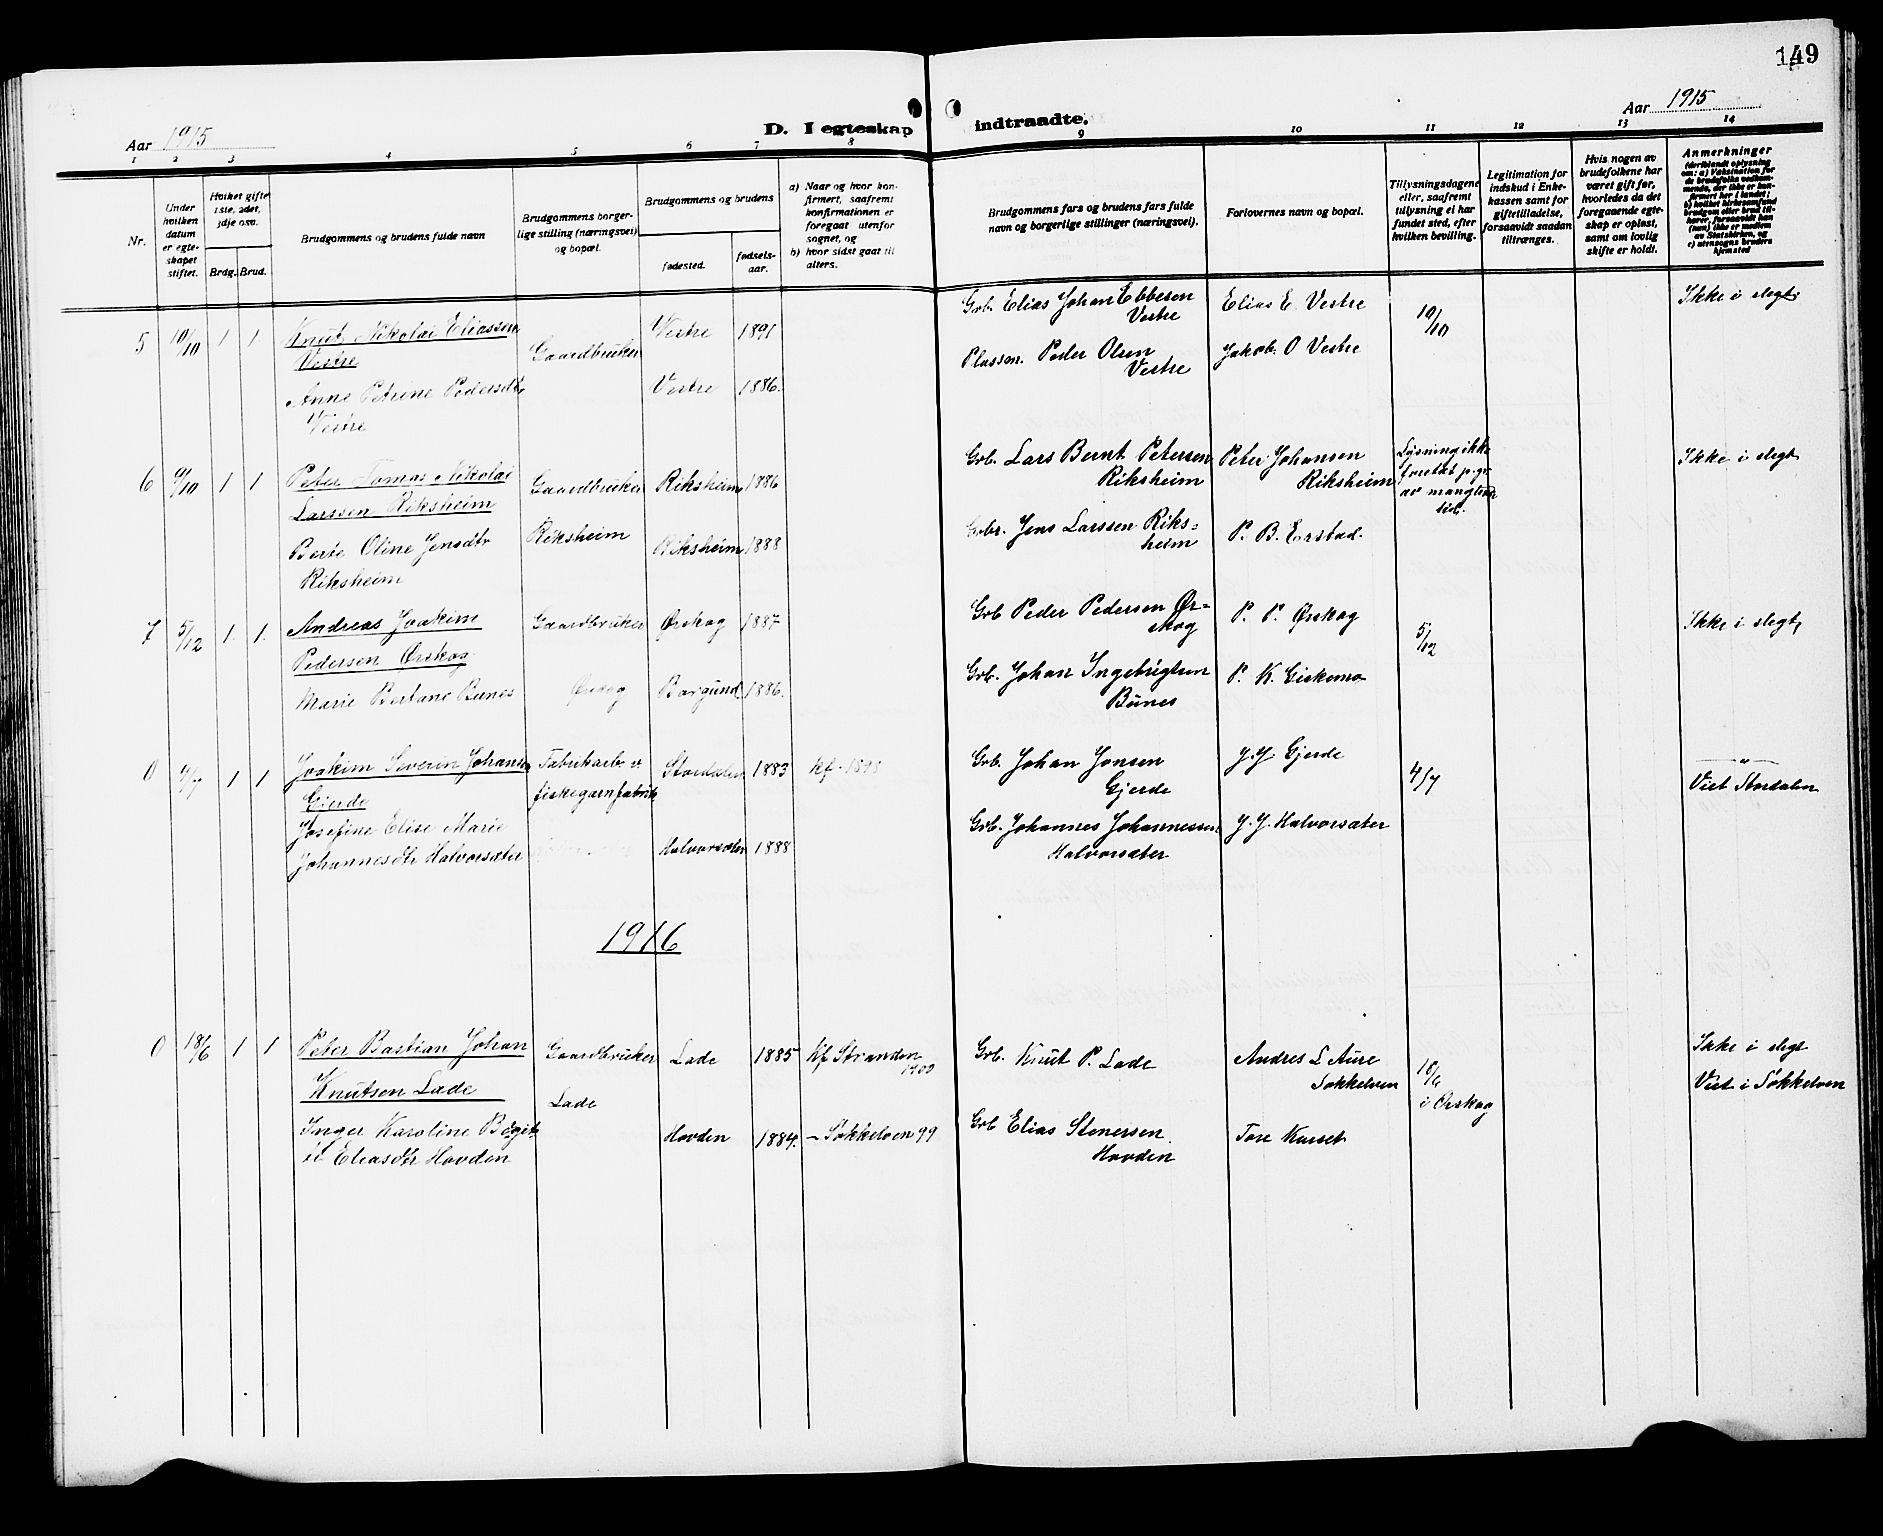 149
Aar 1915
D. I egteskap indtraadte.
Aar 1915
1 2 3 4 5 6 7 8 9 10 11 12 13 14
Nr.
Under hvilken datum er egteskapet stiftet.
Hvilket gifte 1ste, 2det, 3dje osv.
Brdg. Brud.
Brudgommens og brudens fulde navn
Brudgommens borgerlige stilling (næringsvei) og bopæl.
Brudgommens og brudens
fødested.
fødselsaar.
a) Naar og hvor konfirmert, saafremt konfirmationen er foregaat utenfor sognet, og
b) hvor sidst gaat til alters.
Brudgommens fars og brudens fars fulde navn og borgerlige stillinger (næringsvei).
Forlovernes navn og bopæl.
Tillysningsdagene eller, saafremt tillysning ei har fundet sted, efter hvilken bevilling.
Legitimation for indskud i Enkekassen samt for giftetilladelse, forsaavidt saadan tiltrænges.
Hvis nogen av brudefolkene har været gift før, hvorledes da det foregaaende egteskap er opløst, samt om lovlig skifte er holdt.
Anmerkninger
5 10/10 1 1 Knut Nikolai Eliassen Vestre Gaardbruker Vestre 1891 Grb. Elias Johan Ebbesen Vestre Elias E. Vestre 10/10 Ikke i slegt.
Anne Petrine Pedersdtr Vestre Vestre 1886. Plassm. Peder Olsen Vestre Jakob. O Vestre
6 1 1 Peter Tomas Nikolai Larssen Riksheim Gaardbruker Riksheim Riksheim 1886 Grb. Lars Bernt Petersen Riksheim Peter Johansen Riksheim Lysning ikke foretat p.gr. av manglende tid. Ikke i slegt
Berte Oline Jensdtr Riksheim Riksheim 1888 Grbr. Jens Larssen Riksheim P. B. Erstad.
7 5/12 1. 1. Andreas Joakim Pedersen Ørskog Gaardbruker Ørskog Ørskog 1887 Grb Peder Pedersen Ørskog P. P. Ørskog 5/12 Ikke i slegt,
Marie Bertane Bunes Borgund 1886. Grb. Johan Ingebrigtsen Bunes P. K. Eikemo
0 4/7 1 1 Joakim Severin Johansen Gjerde Fabrikarb. v fiskegarnfabrik Stordalen 1883 Kf. 1898 Grb. Johan Jonsen Gjerde J. J. Gjerde 4/7 — " —
Viet Stordalen
Josefine Elise Marie Johannesdtr Halvorsæter Halvorsæter 1888 Grb. Johannes Johannessen Halvorsæter J. J. Halvorsæter
1916
0 18/6 1 1 Peter Bastian Johan Knutsen Lade Gaardbruker Lade Lade 1885 Kf Stranden 1900 Grb. Knut P. Lade Andres L Aure Søkkelven 18/6 i Ørskog Ikke i slegt
Viet i Søkkelven
Inger Karoline Eliasdtr Hovden Hovden 1884. – Søkkelven 99 Grb Elias Stenersen Hovden Tore Kurset